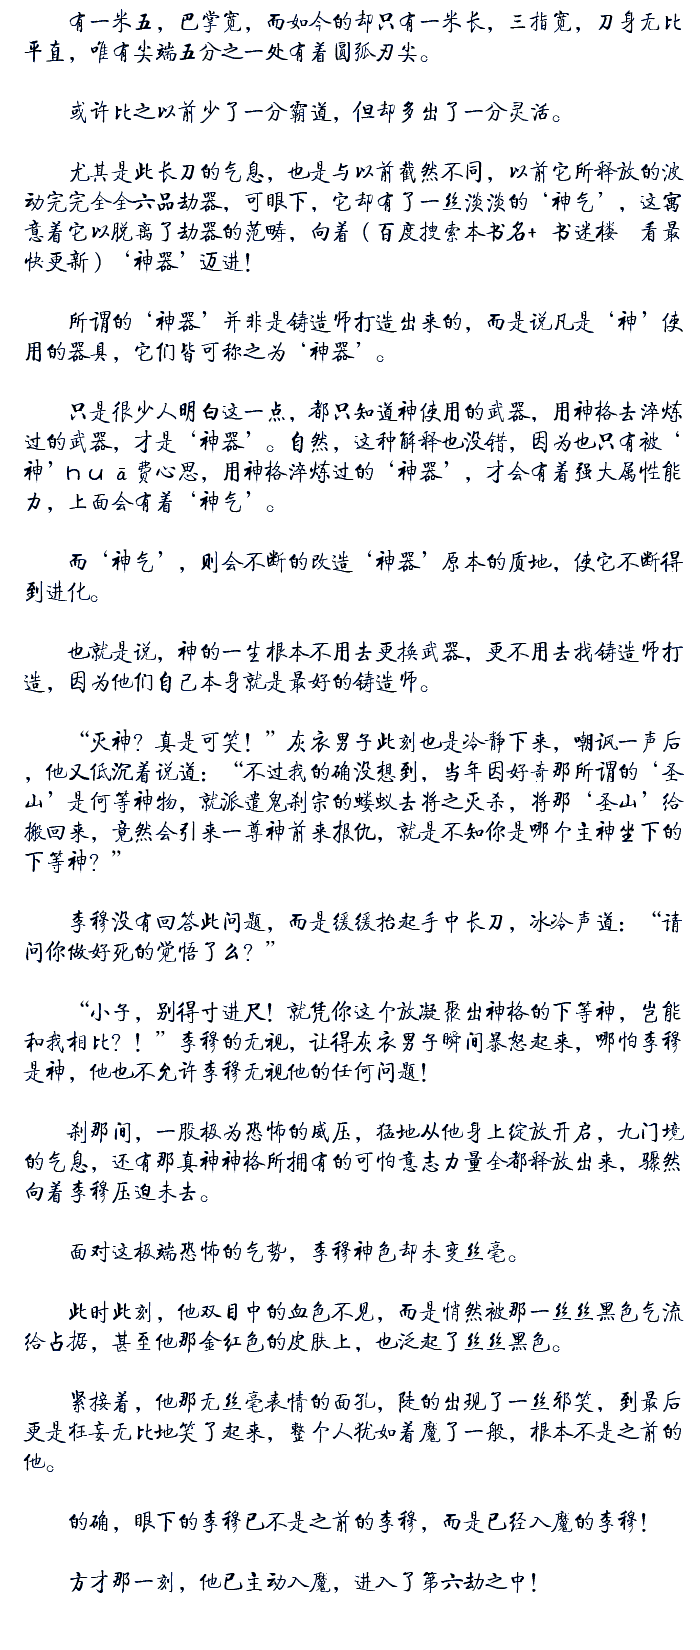 有一米五，巴掌宽，而如今的却只有一米长，三指宽，刀身无比
平直，唯有尖端五分之一处有着圆弧刃尖。
或许比之以前少了一分霸道，但却多出了一分灵活。
尤其是此长刀的气息，也是与以前截然不同，以前它所释放的波
动完完全全六品劫器，可眼下，它却有了一丝淡淡的‘神气’，这寓
意着它以脱离了劫器的范畴，向着（百度搜索本书名+ 书迷楼 看最
快更新）‘神器’迈进！
所谓的‘神器’并非是铸造师打造出来的，而是说凡是‘神’使
用的器具，它们皆可称之为‘神器’。
只是很少人明白这一点，都只知道神使用的武器，用神格去淬炼
过的武器，才是‘神器’。自然，这种解释也没错，因为也只有被‘
神’huā费心思，用神格淬炼过的‘神器’，才会有着强大属性能
力，上面会有着‘神气’。
而‘神气’，则会不断的改造‘神器’原本的质地，使它不断得
到进化。
也就是说，神的一生根本不用去更换武器，更不用去找铸造师打
造，因为他们自己本身就是最好的铸造师。
“灭神？真是可笑！”灰衣男子此刻也是冷静下来，嘲讽一声后
，他又低沉着说道：“不过我的确没想到，当年因好奇那所谓的‘圣
山’是何等神物，就派遣鬼刹宗的蝼蚁去将之灭杀，将那‘圣山’给
搬回来，竟然会引来一尊神前来报仇，就是不知你是哪个主神坐下的
下等神？”
李穆没有回答此问题，而是缓缓抬起手中长刀，冰冷声道：“请
问你做好死的觉悟了么？”
“小子，别得寸进尺！就凭你这个放凝聚出神格的下等神，岂能
和我相比？！”李穆的无视，让得灰衣男子瞬间暴怒起来，哪怕李穆
是神，他也不允许李穆无视他的任何问题！
刹那间，一股极为恐怖的威压，猛地从他身上绽放开启，九门境
的气息，还有那真神神格所拥有的可怕意志力量全都释放出来，骤然
向着李穆压迫未去。
面对这极端恐怖的气势，李穆神色却未变丝毫。
此时此刻，他双目中的血色不见，而是悄然被那一丝丝黑色气流
给占据，甚至他那金红色的皮肤上，也泛起了丝丝黑色。
紧接着，他那无丝毫表情的面孔，陡的出现了一丝邪笑，到最后
更是狂妄无比地笑了起来，整个人犹如着魔了一般，根本不是之前的
他。
的确，眼下的李穆已不是之前的李穆，而是已经入魔的李穆！
方才那一刻，他已主动入魔，进入了第六劫之中！